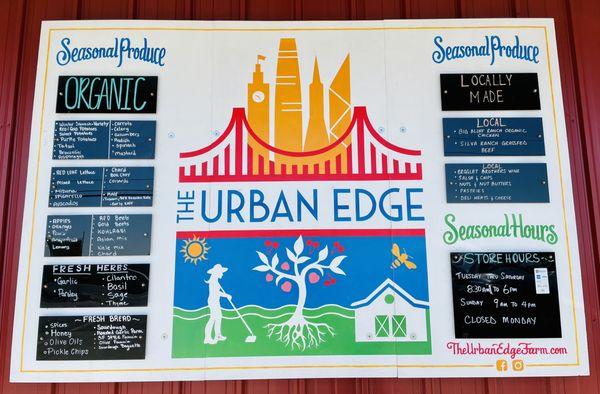 Seasonal Produce
ORGANIC
Winter Squash-Variety
Red/Gold Potatoes
Sweet Potatoes
Purple Potatoes
Tatsoi
Broccolini
Asparagus
Carrots
Celery
Cucumbers
Radish
Spinach
Mustard
Red Leaf Lettuce
Mizuna
Avocados
Chard
Bok Choy
Collards
Apples
Oranges
Lemons
Red Beets
Gold Beets
Kohlrabi
Asian Mix
Kale Mix
Chard
Fresh Herbs
Garlic
Parsley
Cilantro
Basil
Sage
Thyme
~Fresh Bread~
Spices
Honey
Olive Oils
Pickle Chips
Sourdough
Roasted Garlic Parm
Sourdough Baguette
THE URBAN EDGE
Seasonal Produce
LOCALLY
MADE
LOCAL
Big Bluff Ranch Organic
Chicken
Silva Ranch Grassfed
Beef
LOCAL
Berryler Brothers Wine
Salsa & Chips
Nuts & Nut Butters
Pasteries
Deli Meats & Cheese
Seasonal Hours
STORE HOURS
Tuesday Thru Saturday
8:30 AM to 6 PM
Sunday 9 AM to 4 PM
CLOSED MONDAY
TheUrbanEdgeFarm.com